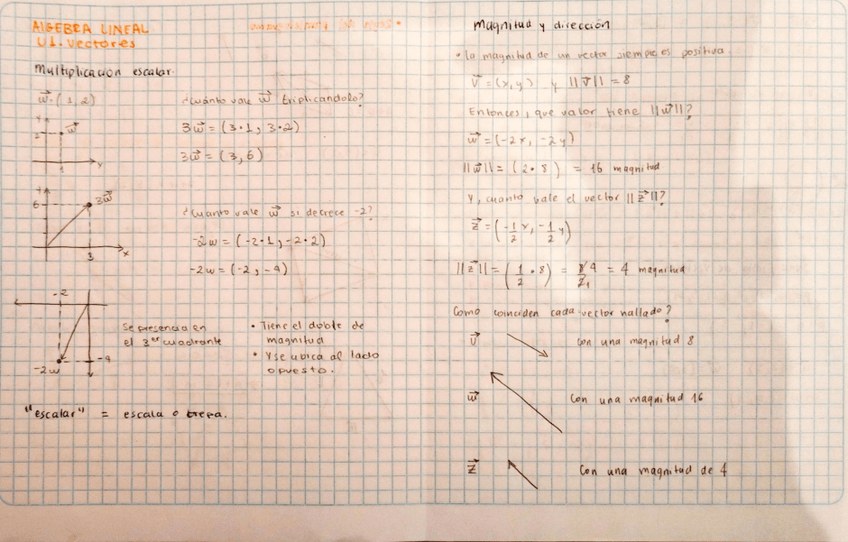 ALGEBRA LINEAL
U1. Vectores
Multiplicación escalar.
w⃗=(1,2)
¿Cuánto vale w⃗ triplicandolo?
y
2
w⃗
1
x
3w⃗ = (3·1, 3·2)
3w⃗ = (3,6)
y
6
3w⃗
3
x
¿Cuanto vale w⃗ si decrece -2?
-2w = (-2·1, -2·2)
-2w = (-2, -4)
-2
-4
-2w
Se presencia en
el 3er cuadrante
• Tiene el doble de
magnitud
• Y se ubica al lado
opuesto.
"escalar" = escala o trepa.
Magnitud y dirección
• la magnitud de un vector siempre es positiva.
v⃗ = (x,y) y ||v⃗|| = 8
Entonces, que valor tiene ||w⃗||?
w⃗ = (-2x, -2y)
||w⃗|| = (2·8) = 16 magnitud
Y, cuanto vale el vector ||z⃗||?
z⃗ = (-1/2 x, -1/2 y)
||z⃗|| = (1/2 · 8) = 8/2 4/1 = 4 magnitud
Como coinciden cada vector hallado?
v⃗ con una magnitud 8
w⃗ con una magnitud 16
z⃗ Con una magnitud de 4